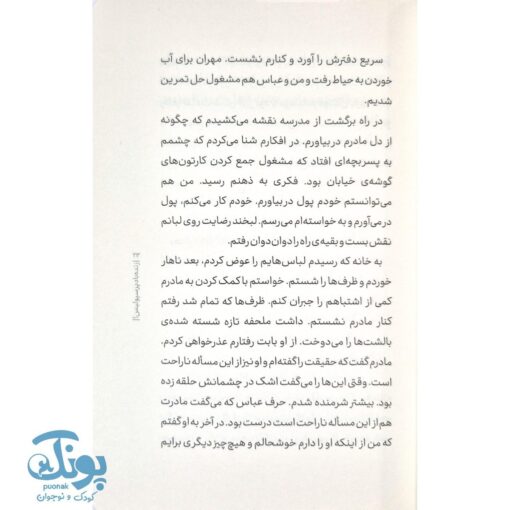 سریع دفترش را آورد و کنارم نشست. مهران برای آب
خوردن به حیاط رفت و من و عباس هم مشغول حل تمرین
شدیم.
در راه برگشت از مدرسه نقشه می‌کشیدم که چگونه
از دل مادرم در بیاورم. در افکارم شنا می‌کردم که چشمم
به پسربچه‌ای افتاد که مشغول جمع کردن کارتون‌های
گوشه‌ی خیابان بود. فکری به ذهنم رسید. من هم
می‌توانستم خودم پول در بیاورم. خودم کار می‌کنم، پول
در می‌آورم و به خواسته‌ام می‌رسم. لبخند رضایت روی لبانم
نقش بست و بقیه‌ی راه را دوان دوان رفتم.
به خانه که رسیدم لباس‌هایم را عوض کردم، بعد ناهار
خوردم و ظرف‌ها را شستم. خواستم با کمک کردن به مادرم
کمی از اشتباهم را جبران کنم. ظرف‌ها که تمام شد رفتم
کنار مادرم نشستم. داشت ملحفه تازه شسته شده‌ی
بالشت‌ها را می‌دوخت. از او بابت رفتارم عذرخواهی کردم.
مادرم گفت که حقیقت را گفته‌ام و او نیز از این مسأله ناراحت
است. وقتی این‌ها را می‌گفت اشک در چشمانش حلقه زده
بود. بیشتر شرمنده شدم. حرف عباس که می‌گفت مادرت
هم از این مسأله ناراحت است درست بود. در آخر به او گفتم
که من از اینکه او را دارم خوشحالم و هیچ چیز دیگری برایم
پونک
puonak
کودک و نوجوان